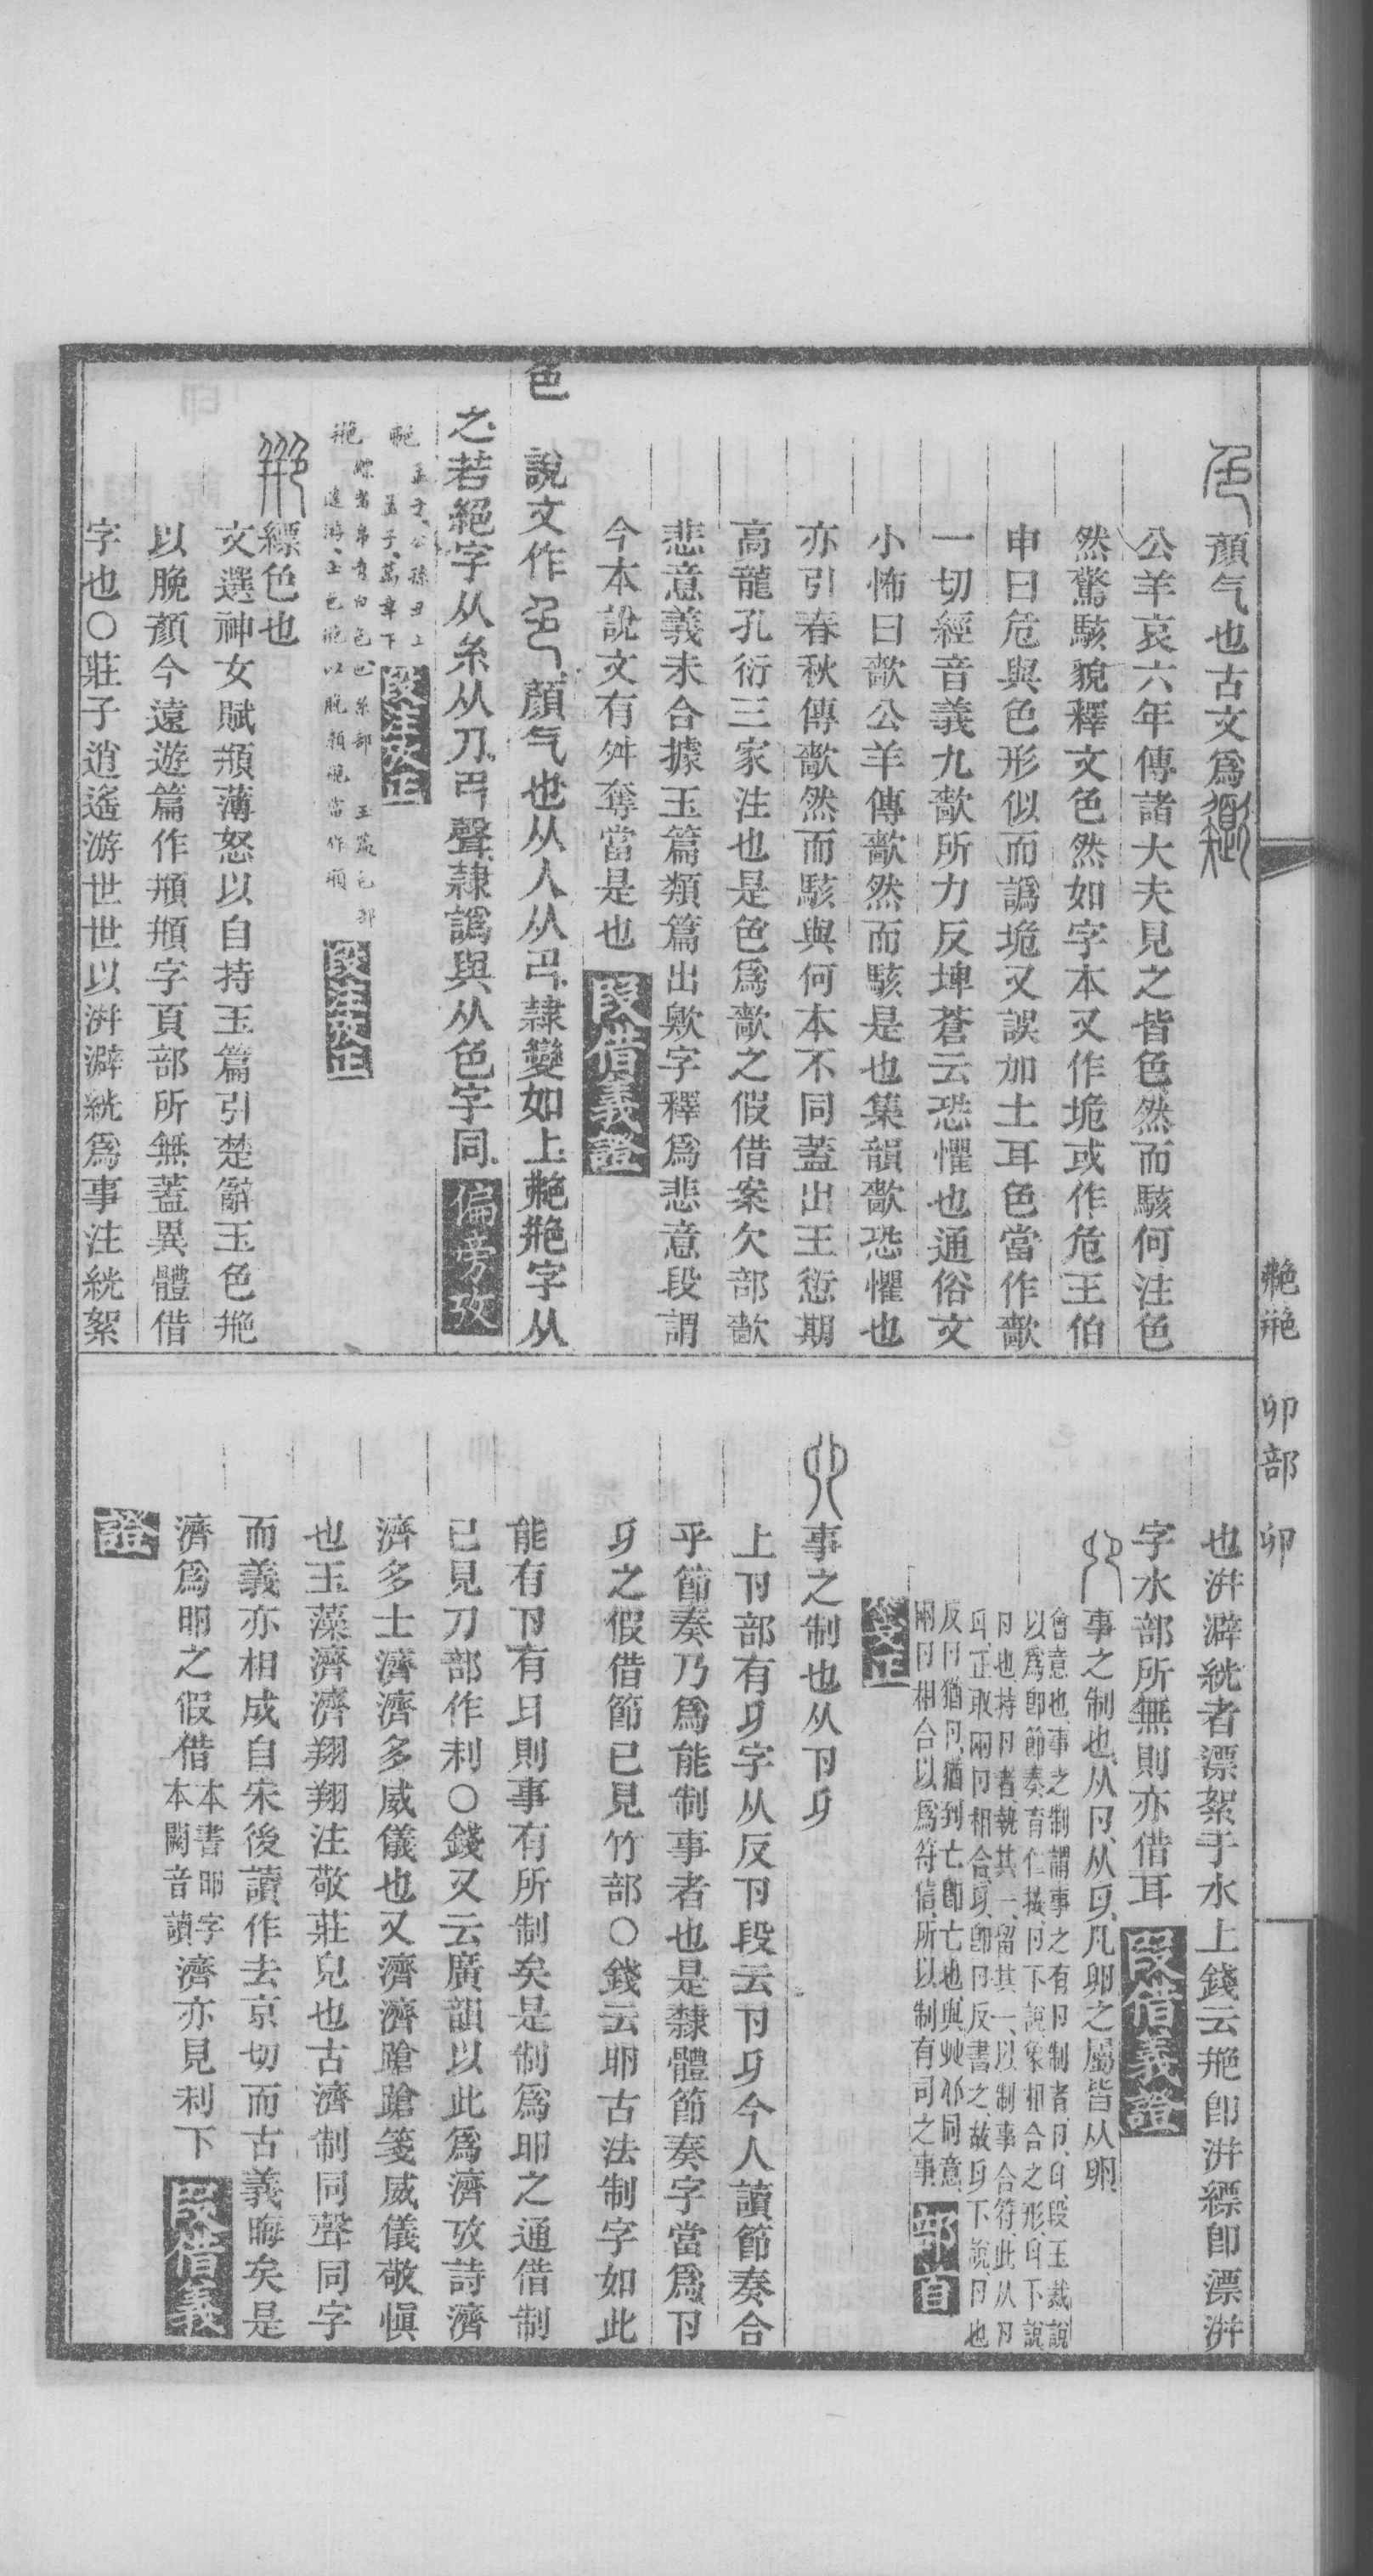 艴艵　卯部　卯
色顏气也古文爲
公羊哀六年傳諸大夫見之皆色然而駭何注色
然驚駭貌釋文色然如字本又作垝或作危王伯
申曰危與色形似而譌垝又誤加土耳色當作歖
一切經音義九歖所力反埤蒼云恐懼也通俗文
小怖曰歖公羊傳歖然而駭是也集韻歖恐懼也
亦引春秋傳歖然而駭與何本不同蓋出王愆期
高龍孔衍三家注也是色爲歖之假借案欠部歖
悲意義未合據玉篇類篇出欶字釋爲悲意段謂
今本說文有舛奪當是也　段借義證
色　說文作　顏气也从人从卪隷變如上艴艵字从
之若絕字从糸从刀卪聲隷譌與从色字同　偏旁攷
艴　孟子公孫丑上
孟子萬章下　段注攷正
艵　縹者帛青白色也糸部　玉篇色部
遠游玉色頩以脕顏
段注攷正
艵縹色也
文選神女賦頩薄怒以自持玉篇引楚辭玉色艵
以脕顏今遠遊篇作頩頩字頁部所無蓋異體借
字也〇莊子逍遙游世世以洴澼絖爲事注絖絮
也洴澼絖者漂絮于水上錢云艵卽洴縹卽漂洴
字水部所無則亦借耳　段借義證
卯事之制也从卪从𠨎凡卯之屬皆从卯
會意也事之制謂事之有卪制者卪𠨎段玉裁說
以爲卽節奏育仁按卪下說象相合之形𠨎下說
卪也持卪者執其一留其一以制事合符此从卪
𠨎正取兩卪相合𠨎卽卪反書之故𠨎下說卪也
反卪猶卪猶到亡卽亡也與艸仈同意
兩卪相合以爲符信所以制有司之事　部首
箋正
卯事之制也从卪𠨎
上卪部有𠨎字从反卪段云卪𠨎今人讀節奏合
乎節奏乃爲能制事者也是隸體節奏字當爲卪
𠨎之假借節已見竹部〇錢云卯古法制字如此
能有卪有𠨎則事有所制矣是制爲卯之通借制
已見刀部作利〇錢又云廣韻以此爲濟攷詩濟
濟多士濟濟多威儀也又濟濟蹌蹌箋威儀敬愼
也玉藻濟濟翔翔注敬莊皃也古濟制同聲同字
而義亦相成自宋後讀作去京切而古義晦矣是
濟爲卯之假借本書卯字本闕音讀濟亦見利下　段借義
證